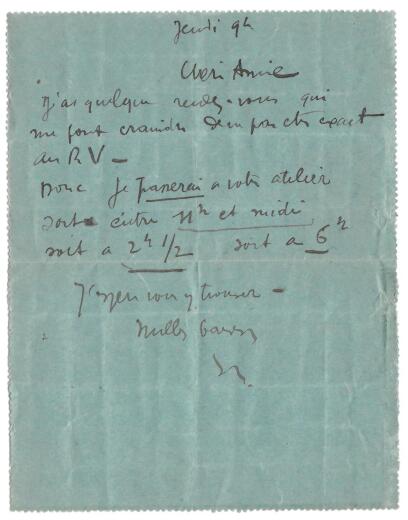 Jeudi 9h
Cher Amie
J'ai quelques rendez-vous qui
me font craindre d'être exact
au RV –
Donc je passerai à votre atelier
soit entre 11h et midi
soit à 2h 1/2 soit à 6h
J'espère vous y trouver –
Mille